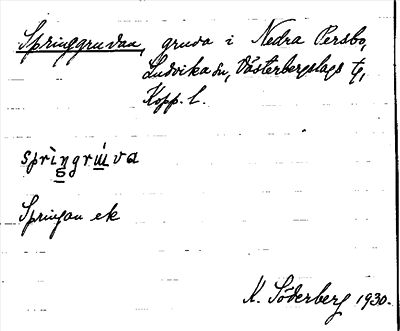 Springgruvan, gruva i Nedra Persbo,
Ludvika sn, Västerbergslags tg,
Kopp. l.
spriŋgrúva
Springan ek
K. Söderberg 1930.